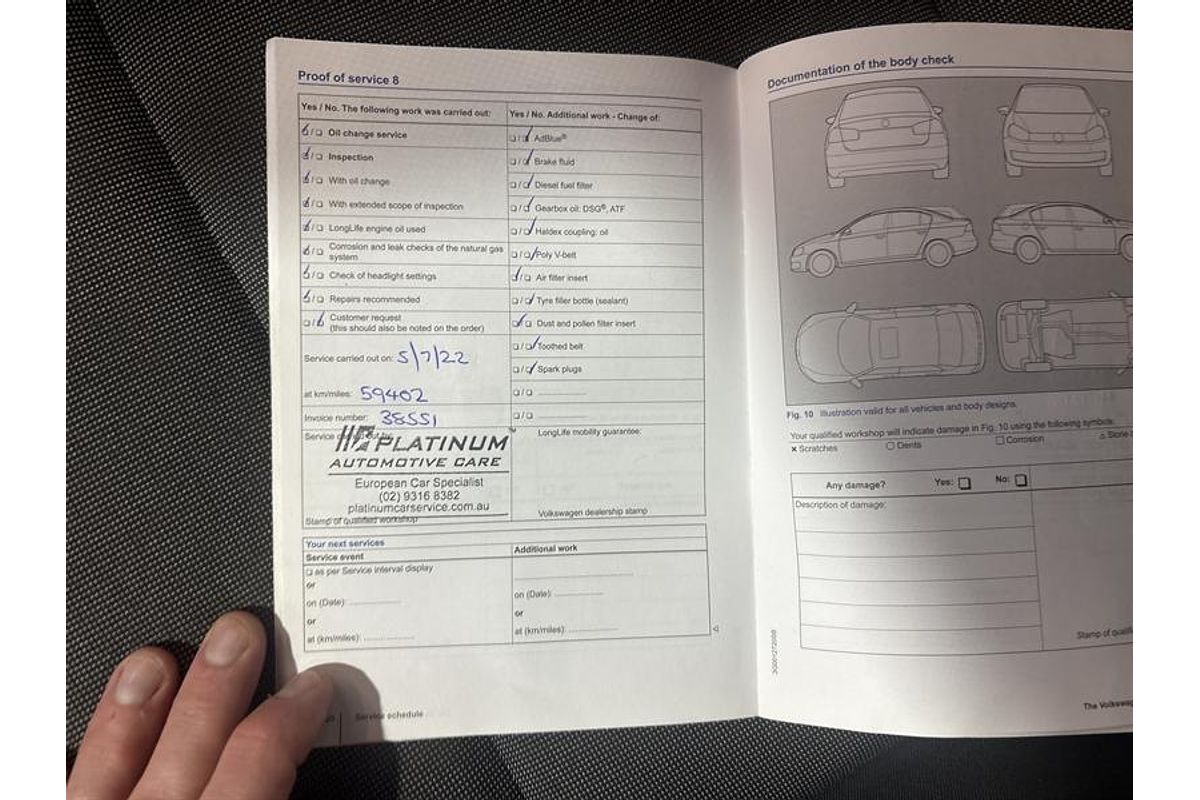 Proof of service 8
Yes / No. The following work was carried out:
Oil change service
Inspection
With oil change
With extended scope of inspection
LongLife engine oil used
Corrosion and leak checks of the natural gas
system
Check of headlight settings
Repairs recommended
Customer request
(this should also be noted on the order)
Service carried out on: 5/7/22
at km/miles: 59402
Invoice number: 38551
PLATINUM
AUTOMOTIVE CARE
European Car Specialist
(02) 9316 8382
platinumcarservice.com.au
Stamp of qualified workshop
Yes / No. Additional work - Change of:
AdBlue®
Brake fluid
Diesel fuel filter
Gearbox oil: DSG®, ATF
Haldex coupling: oil
Poly V-belt
Air filter insert
Tyre filler bottle (sealant)
Dust and pollen filter insert
Toothed belt
Spark plugs
LongLife mobility guarantee:
Volkswagen dealership stamp
Your next services
Service event
as per Service interval display
or
on (Date):
or
at (km/miles):
Additional work
on (Date):
or
at (km/miles):
Service schedule
Documentation of the body check
Fig. 10 Illustration valid for all vehicles and body designs.
Your qualified workshop will indicate damage in Fig. 10 using the following symbols:
x Scratches
Dents
Corrosion
Stone
Any damage? Yes: No:
Description of damage:
Stamp of
The